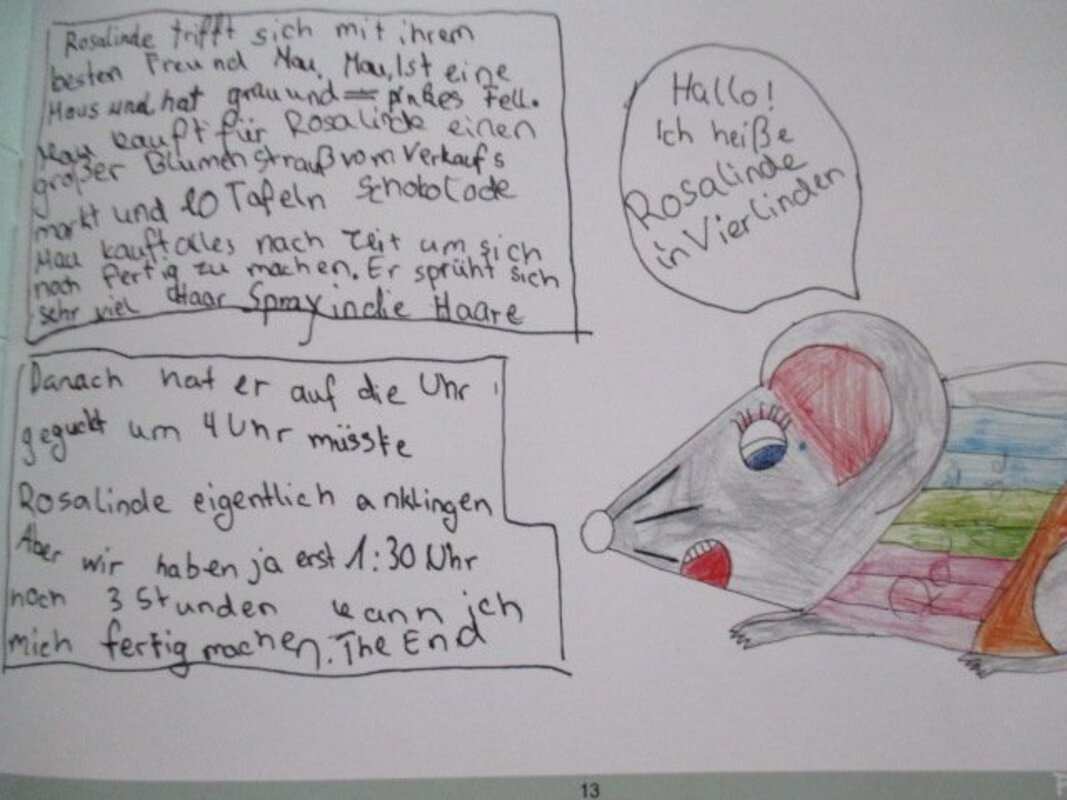 Rosalinde trifft sich mit ihrem
besten Freund Mau, Mau, Ist eine
Maus und hat grau und pinkes Fell.
Mau kauft für Rosalinde einen
großer Blumenstrauß vom Verkaufs
markt und 10 Tafeln Schokolade
Mau kauft alles nach Zeit um sich
noch fertig zu machen. Er sprüht sich
sehr viel Haar Spray in die Haare
Danach hat er auf die Uhr
geguckt um 4 Uhr müsste
Rosalinde eigentlich anklingen
Aber wir haben ja erst 1:30 Uhr
noch 3 Stunden kann ich
mich fertig machen. The End
Hallo!
Ich heiße
Rosalinde
in Vierlinden
13